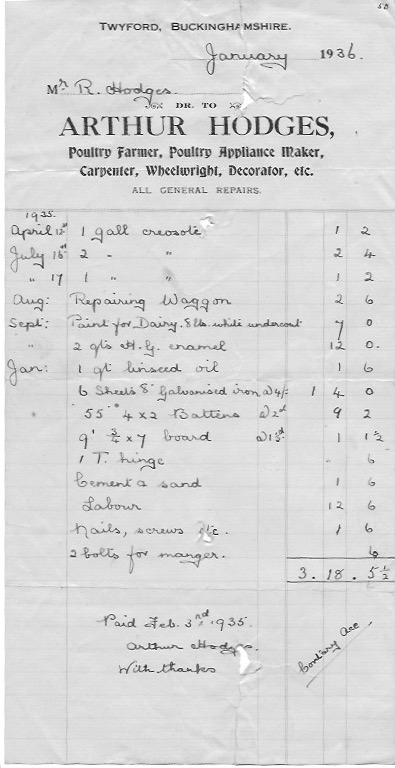 58
TWYFORD, BUCKINGHAMSHIRE.
January 1936.
Mr R. Hodges.
DR. TO
ARTHUR HODGES,
Poultry Farmer, Poultry Appliance Maker,
Carpenter, Wheelwright, Decorator, etc.
ALL GENERAL REPAIRS.
1935.
April 12st 1 gall creosote 1 2
July 16st 2 " " 2 4
" 17 1 " " 1 2
Aug: Repairing Waggon 2 6
Sept: Paint for Dairy. 8 lbs. white undercoat 7 0
" 2 qts H.G. enamel 12 0.
Jan: 1 qt linseed oil 1 6
6 Sheets 8' Galvanised iron @ 4/- 1 4 0
55' 4 x 2 Battens @ 2d 9 2
9' ¾ x 7 board @ 1½d. 1 1½
1 T. hinge - 6
Cement & sand 1 6
Labour 12 6
Nails, screws etc. 1 6
2 bolts for manger. 6
3. 18. 5½
Paid Feb. 3rd 1935.
Arthur Hodges.
With thanks
Acc